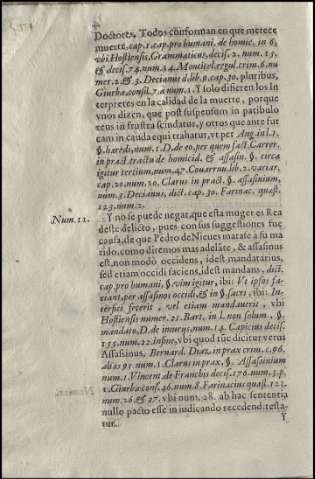 Doctores. Todos conforman en que merece
muerte, cap. 1. cap. pro humani. de homic. in 6,
vbi Hostiensis, Grammaticus, decis. 2. num. 25.
& decis. 74. num. 24. regul. crim. 6. nu
mer. 2. & 5. Decianus d. lib. 9. cap. 30. pluribus,
Giurba consil. 7. a num. 1. Y solo difieren los In
terpretes en la calidad de la muerte, porque
vnos dizen, que post suspensum in patibulo
eius in frustra scindatur, y otros que ante fur
cam in cauda equi trahatur, vt per Ang. in l. 1.
§. hæredi, num. 1. D. de eo, per quem fact. Carrer.
in pract. tractu de homicid. & assasin. §. circa
igitur tertium, num. 47. Couarru. lib. 2. variar.
cap. 20. num. 10. Clarus in pract. §. assassinium,
num. 3. Decianus, dict. cap. 30. Farinac. quæst.
123. num. 2.
Num. 22. Y no se puede negar, que esta muger es Rea
deste delicto, pues con sus suggestiones fue
causa, de que Pedro de Nieues matase a su ma
rido, como diremos mas adelāte, & assasinus
est, non modò occidens, idest mandatarius,
sed etiam occidi faciens, idest mandans, dict.
cap pro humani, §. vim igitur, ibi: Vt ipsos fa-
ciant, per assasinos occidi, & in §. sacri, ibi: In-
terfici fecerit, vel etiam mandauerit, vbi
Hostiensis numer. 21. Bart. in l. non solum, §.
mandato, D. de iniurijs, num. 14. Capicius decis.
155. num. 22. in fine, vbi quod tũc dicitur verus
Assasinus, Bernard. Diaz, in prax crim. c. 96,
ali as 91 num. 3. Clarus in prax, §. Assasinium
num. 1. Vincen. de Franchis decis. 176. num. 3. p.
1. Giurba cons. 46. num. 8. Farinacius quæst. 123.
num. 26 & 27. vbi num. 28. ab hac sententia
nullo pacto esse in iudicando recedend. testa-
tur.
Y